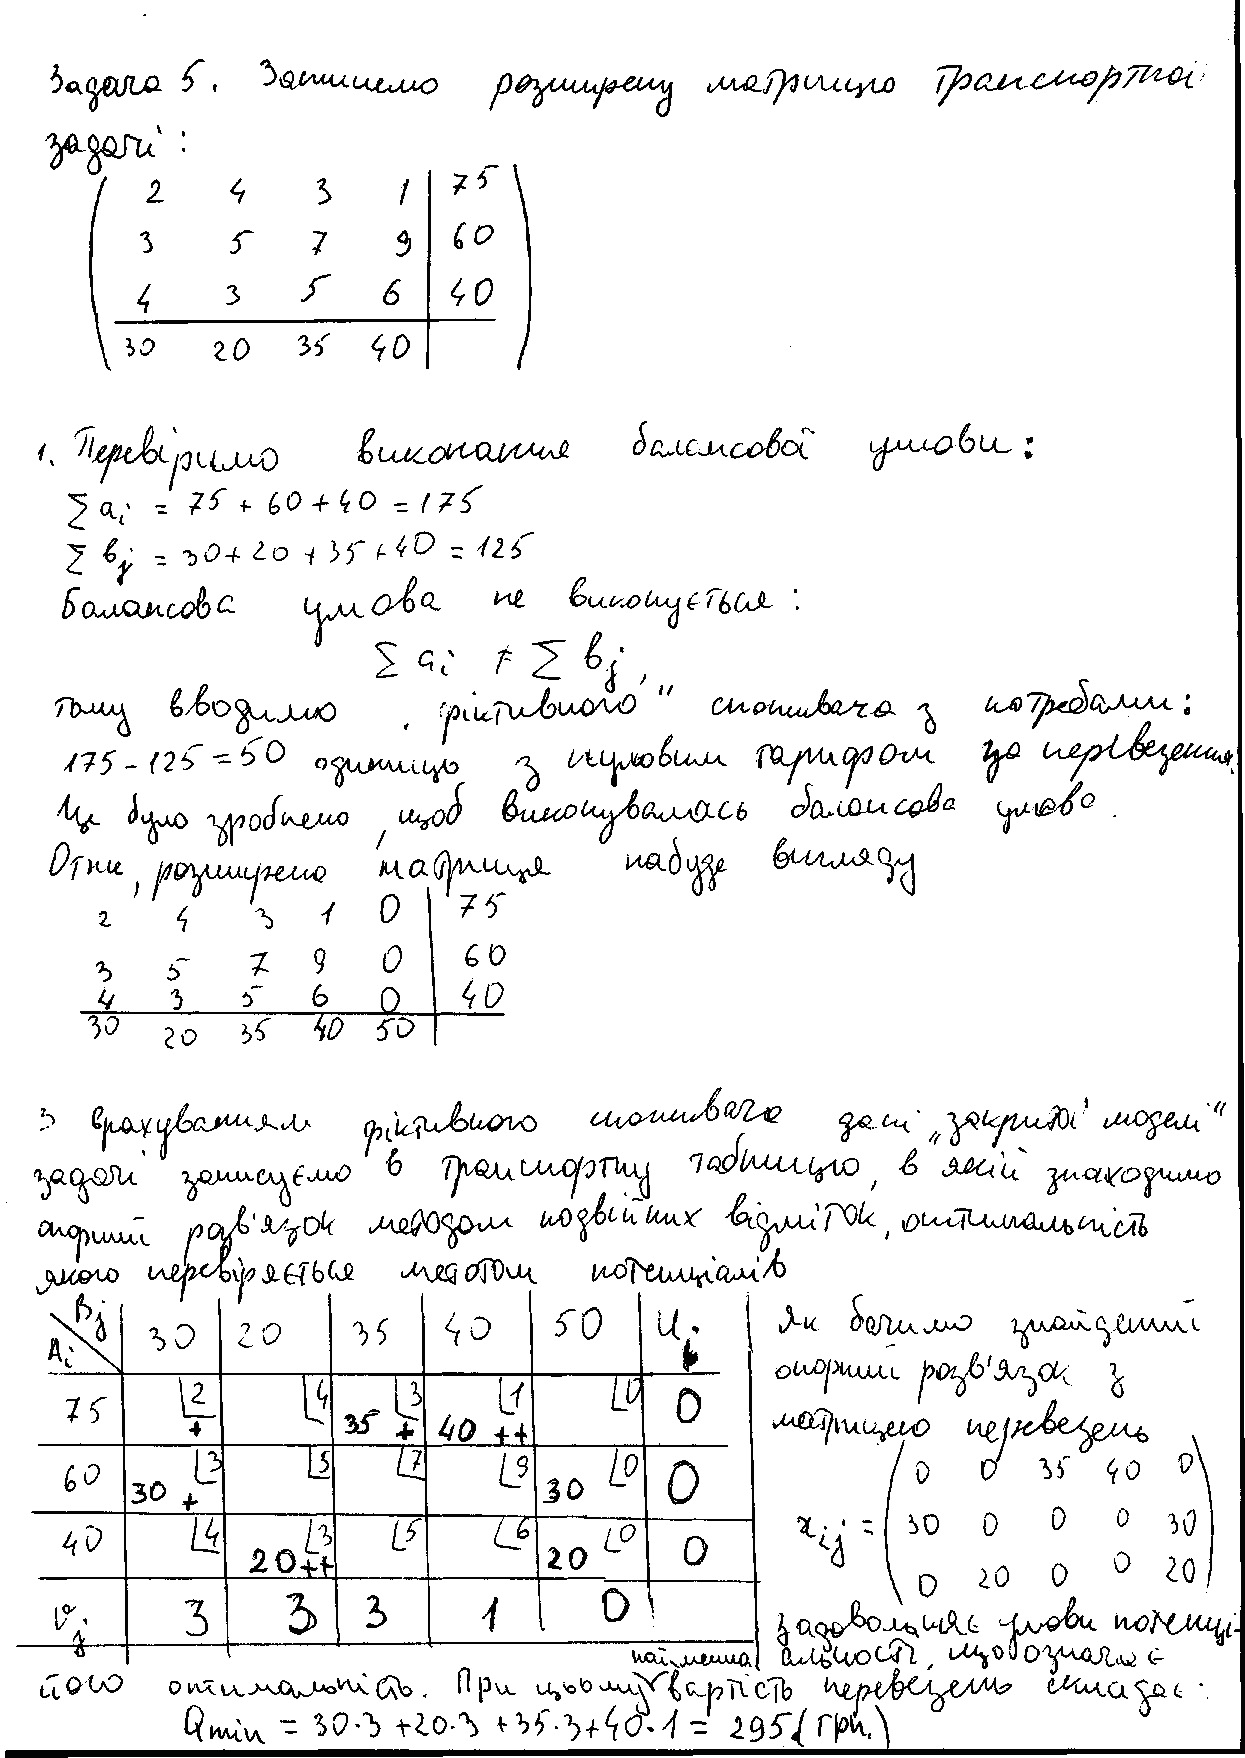 Задача 5. Запишемо розширену матрицю транспортної
задачі:
2 4 3 1 | 75
3 5 7 9 | 60
4 3 5 6 | 40
30 20 35 40 |
1. Перевіримо виконання балансової умови:
∑ aᵢ = 75 + 60 + 40 = 175
∑ bⱼ = 30 + 20 + 35 + 40 = 125
Балансова умова не виконується:
∑ aᵢ ≠ ∑ bⱼ,
тому вводимо „фіктивного" споживача з потребами:
175 - 125 = 50 одиниць з нульовим тарифом за перевезення.
Це було зроблено, щоб виконувалась балансова умова.
Отже, розширена матриця набуде вигляду
2 4 3 1 0 | 75
3 5 7 9 0 | 60
4 3 5 6 0 | 40
30 20 35 40 50 |
З врахуванням фіктивного споживача дані „закритої моделі"
задачі записуємо в транспортну таблицю, в якій знаходимо
опорний розв'язок методом подвійних відміток, оптимальність
якого перевіряється методом потенціалів
Bⱼ Aᵢ | 30 | 20 | 35 | 40 | 50 | Uᵢ
75 | 2 + | 4 | 35 3 + | 40 1 ++ | 0 | 0
60 | 30 3 + | 5 | 7 | 9 | 30 0 | 0
40 | 4 | 20 3 ++ | 5 | 6 | 20 0 | 0
vⱼ | 3 | 3 | 3 | 1 | 0
Як бачимо знайдений
опорний розв'язок з
матрицею перевезень
0 0 35 40 0
xᵢⱼ = 30 0 0 0 30
0 20 0 0 20
задовольняє умови потенці-
альності, що означає
його оптимальність. При цьому найменша вартість перевезень складає:
Qmin = 30·3 + 20·3 + 35·3 + 40·1 = 295 (грн.)